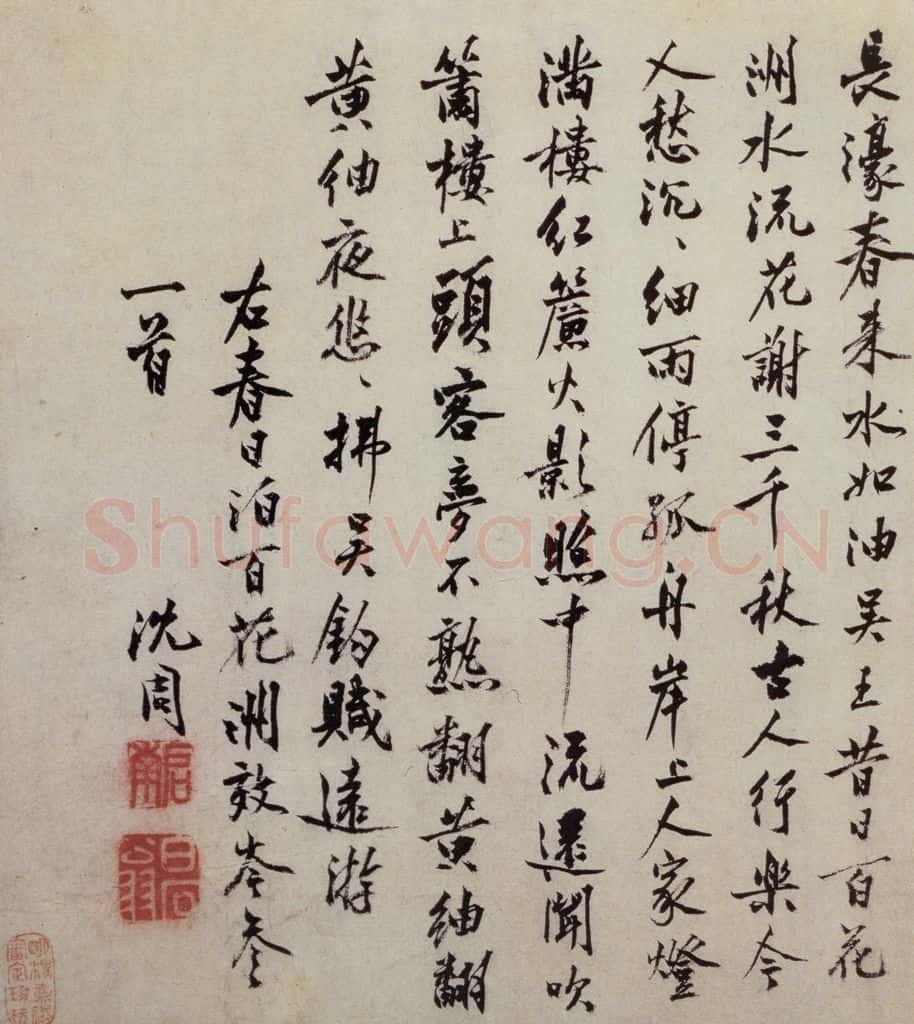 長濠春来水如油吴王昔日百花
洲水流花謝三千秋古人行樂今
人愁沉、細雨停孤舟岸上人家燈
满樓红簾火影照中流遠聞吹
簫樓上頭客夢不熟翻黄紬翻
黄紬夜悠、拂吴鈎賦遠游
右春日泊百花洲效岑参
一首
沈周
啟南
白石翁
Shufawang.CN